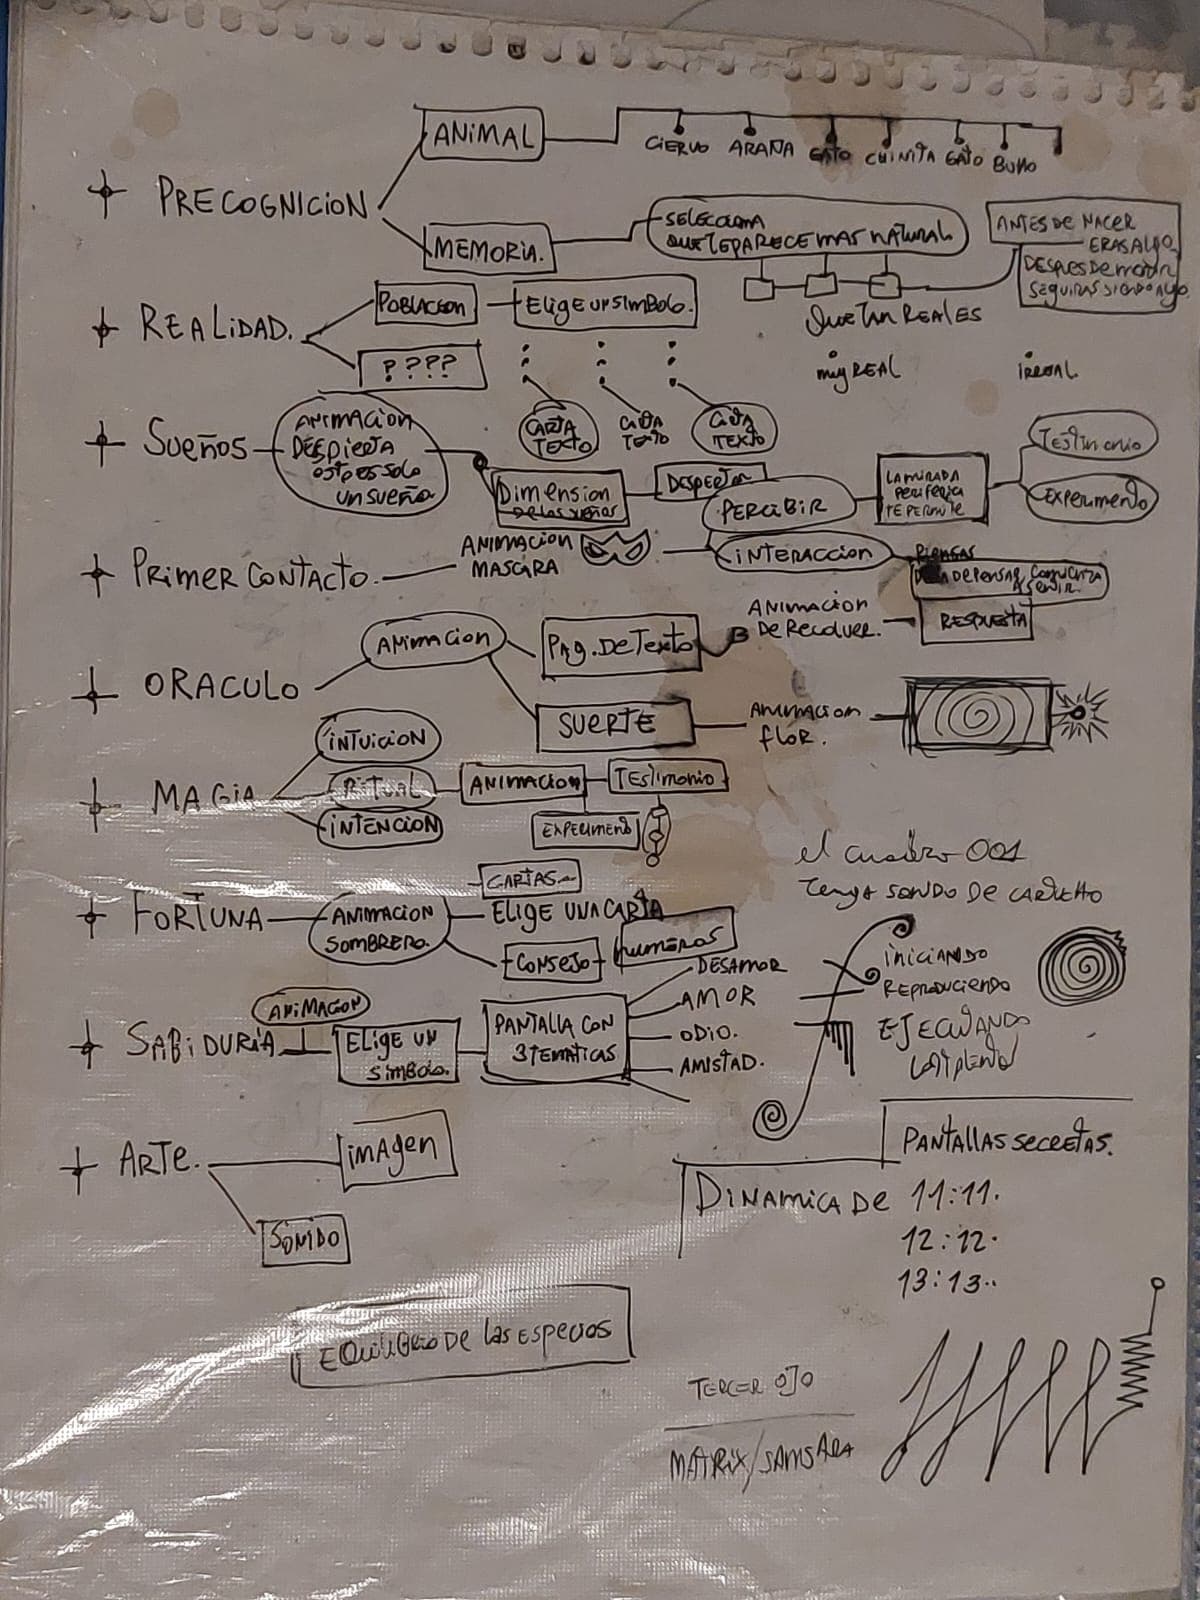 ANIMAL
CIERVO ARAÑA GATO CHINITA GATO BUHO
PRECOGNICION
MEMORIA.
SELECCIONA
QUE TE PARECE MAS NATURAL
ANTES DE NACER
ERAS ALGO
DESPUES DE MORIR
SEGUIRAS SIENDO ALGO
QUE TAN REALES
muy REAL
irreal
REALIDAD.
POBLACION
ELIGE UN SIMBOLO.
????
CARTA TEXTO
CARTA TEXTO
CARTA TEXTO
SUEÑOS
ANIMACION
DESPIERTA
ESTO ES SOLO
UN SUEÑO
Dimension
DE LOS SUEÑOS
DESPERTAR
PERCIBIR
LA MIRADA
PERIFERICA
TE PERMITE
Testimonio
EXPERIMENTO
PRIMER CONTACTO.
ANIMACION
MASCARA
INTERACCION
PIENSAS
DEJA DE PENSAR COMIENZA
A SENTIR.
RESPUESTA
ORACULO
ANIMACION
PAG. DE TEXTO
ANIMACION
DE RECOLVER.
SUERTE
ANIMACION
FLOR.
MAGIA
INTUICION
RITUAL
INTENCION
ANIMACION
TESTIMONIO
EXPERIMENTO
el cuadro 001
tenga SONIDO DE CARTUCHO
FORTUNA
ANIMACION
SOMBRERO.
CARTAS
ELIGE UNA CARTA
CONSEJO
numeros
iniciando
REPRODUCIENDO
EJECUTANDO
SABIDURIA
ANIMACION
ELIGE UN
SIMBOLO.
PANTALLA CON
3 TEMATICAS
DESAMOR
AMOR
ODIO.
AMISTAD.
ARTE.
IMAGEN
SONIDO
PANTALLAS SECRETAS.
DINAMICA DE 11:11.
12:12.
13:13..
EQUILIBRIO DE LAS ESPECIES
TERCER OJO
MATRIX/SAMSARA